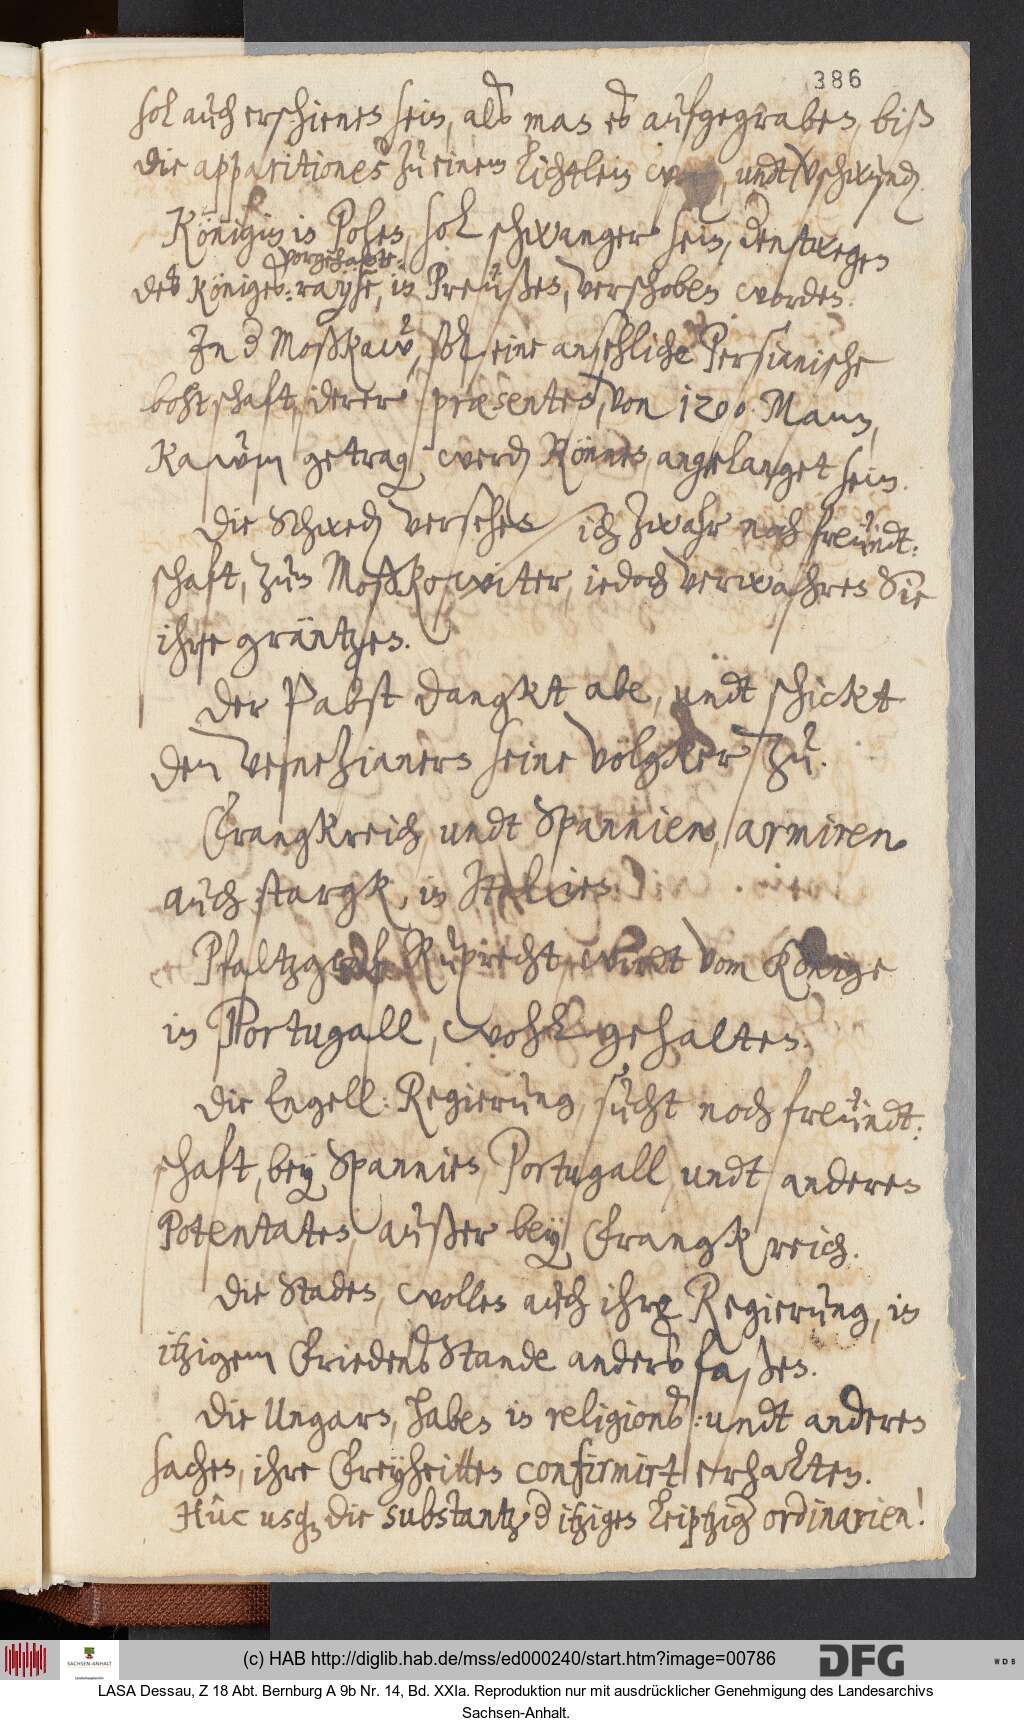 386
sol auch erschienen sein, als man es aufgegraben, biß
die apparitiones zu einem lichtlein undt vschwunden
Königin in Polen, sol schwanger sein, destwegen
vorgehabte
des Königes: rayse, in Preußen, verschoben worden.
In d Moßkaw, sol eine ansehliche Persianische
bohtschaft, derer præsentes, von 1200 Mann,
kaum getragen werden können, angelanget sein.
Die Schweden versehen sich zwahr noch freündt:
schaft, zun Moßkowiter, iedoch verwahren Sie
ihre gräntzen.
Der Pabst dangkt abe, undt schickt
den Venezianern seine völgker zu.
Frangkreich undt Spannien, armiren
auch stargk, in Italien.
Pfaltzgraf Ruprecht wirdt vom Könige
in Portugall, wohl gehalten.
Die Engell: Regierung, sucht noch freündt:
schaft, bey Spannien, Portugall, undt anderen
Potentaten, außer bey Frangkreich.
Die Staden, wollen auch ihre Regierung, in
itzigem Friedens Stande anders faßen.
Die Ungarn, haben in religions: undt anderen
sachen, ihre Freyheitten confirmirt erhalten.
Hûc usque die substantz d itzigen Leiptzig ordinarien!
(c) HAB http://diglib.hab.de/mss/ed000240/start.htm?image=00786
SACHSEN-ANHALT
DFG
WDB
LASA Dessau, Z 18 Abt. Bernburg A 9b Nr. 14, Bd. XXIa. Reproduktion nur mit ausdrücklicher Genehmigung des Landesarchivs
Sachsen-Anhalt.